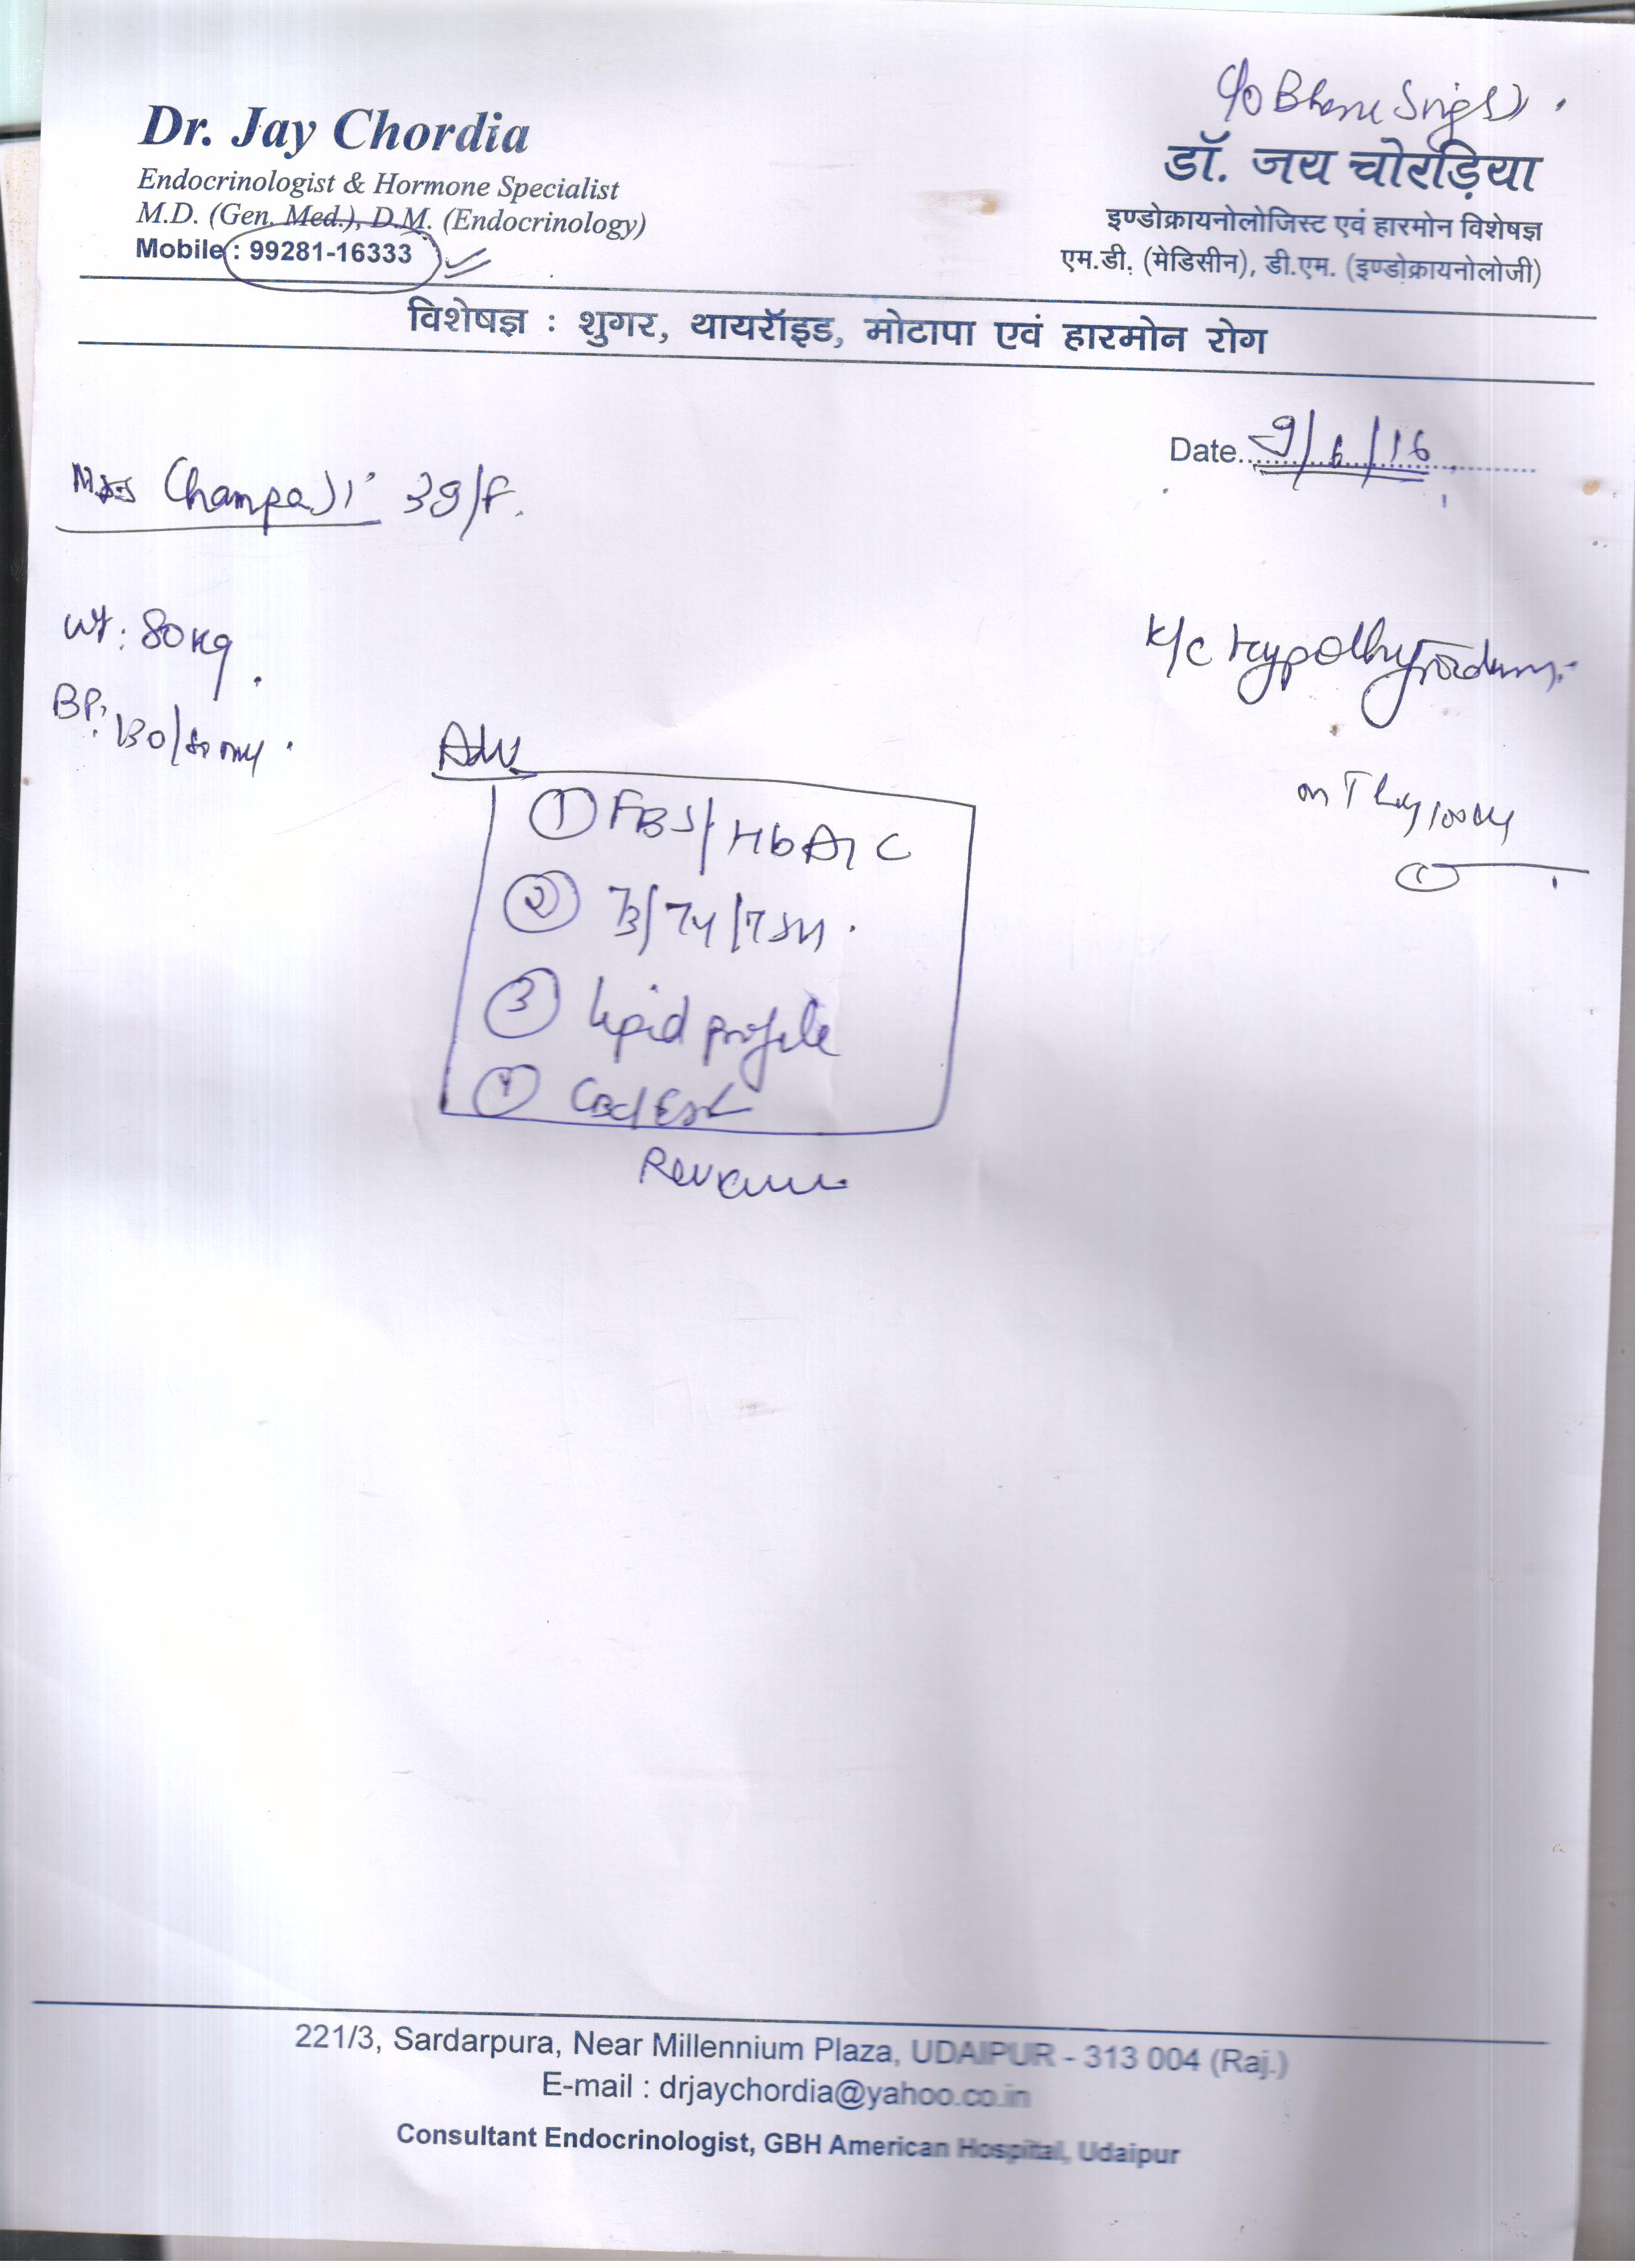 C/o Bhanu Singh
Dr. Jay Chordia
Endocrinologist & Hormone Specialist
M.D. (Gen. Med.), D.M. (Endocrinology)
Mobile : 99281-16333
डॉ. जय चोरड़िया
इण्डोक्रायनोलोजिस्ट एवं हारमोन विशेषज्ञ
एम.डी. (मेडिसीन), डी.एम. (इण्डोक्रायनोलोजी)
विशेषज्ञ : शुगर, थायरॉइड, मोटापा एवं हारमोन रोग
Date 9/6/16
Champa Ji 39/F.
Wt: 80 Kg.
BP: 130/80 mmHg
K/C Hypothyroidism
on Thy 100
Adv
① FBS/HbA1C
② T3/T4/TSH
③ Lipid profile
④ CBC/ESR
221/3, Sardarpura, Near Millennium Plaza, UDAIPUR - 313 004 (Raj.)
E-mail : drjaychordia@yahoo.co.in
Consultant Endocrinologist, GBH American Hospital, Udaipur